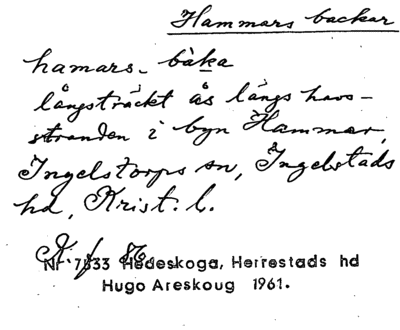 Hammars backar
hamars- bàka
långsträckt ås längs havs-
stranden i byn Hammar,
Ingelstorps sn, Ingelstads
hd, Krist. l.
Nr 7533 Hedeskoga, Herrestads hd
Hugo Areskoug 1961.